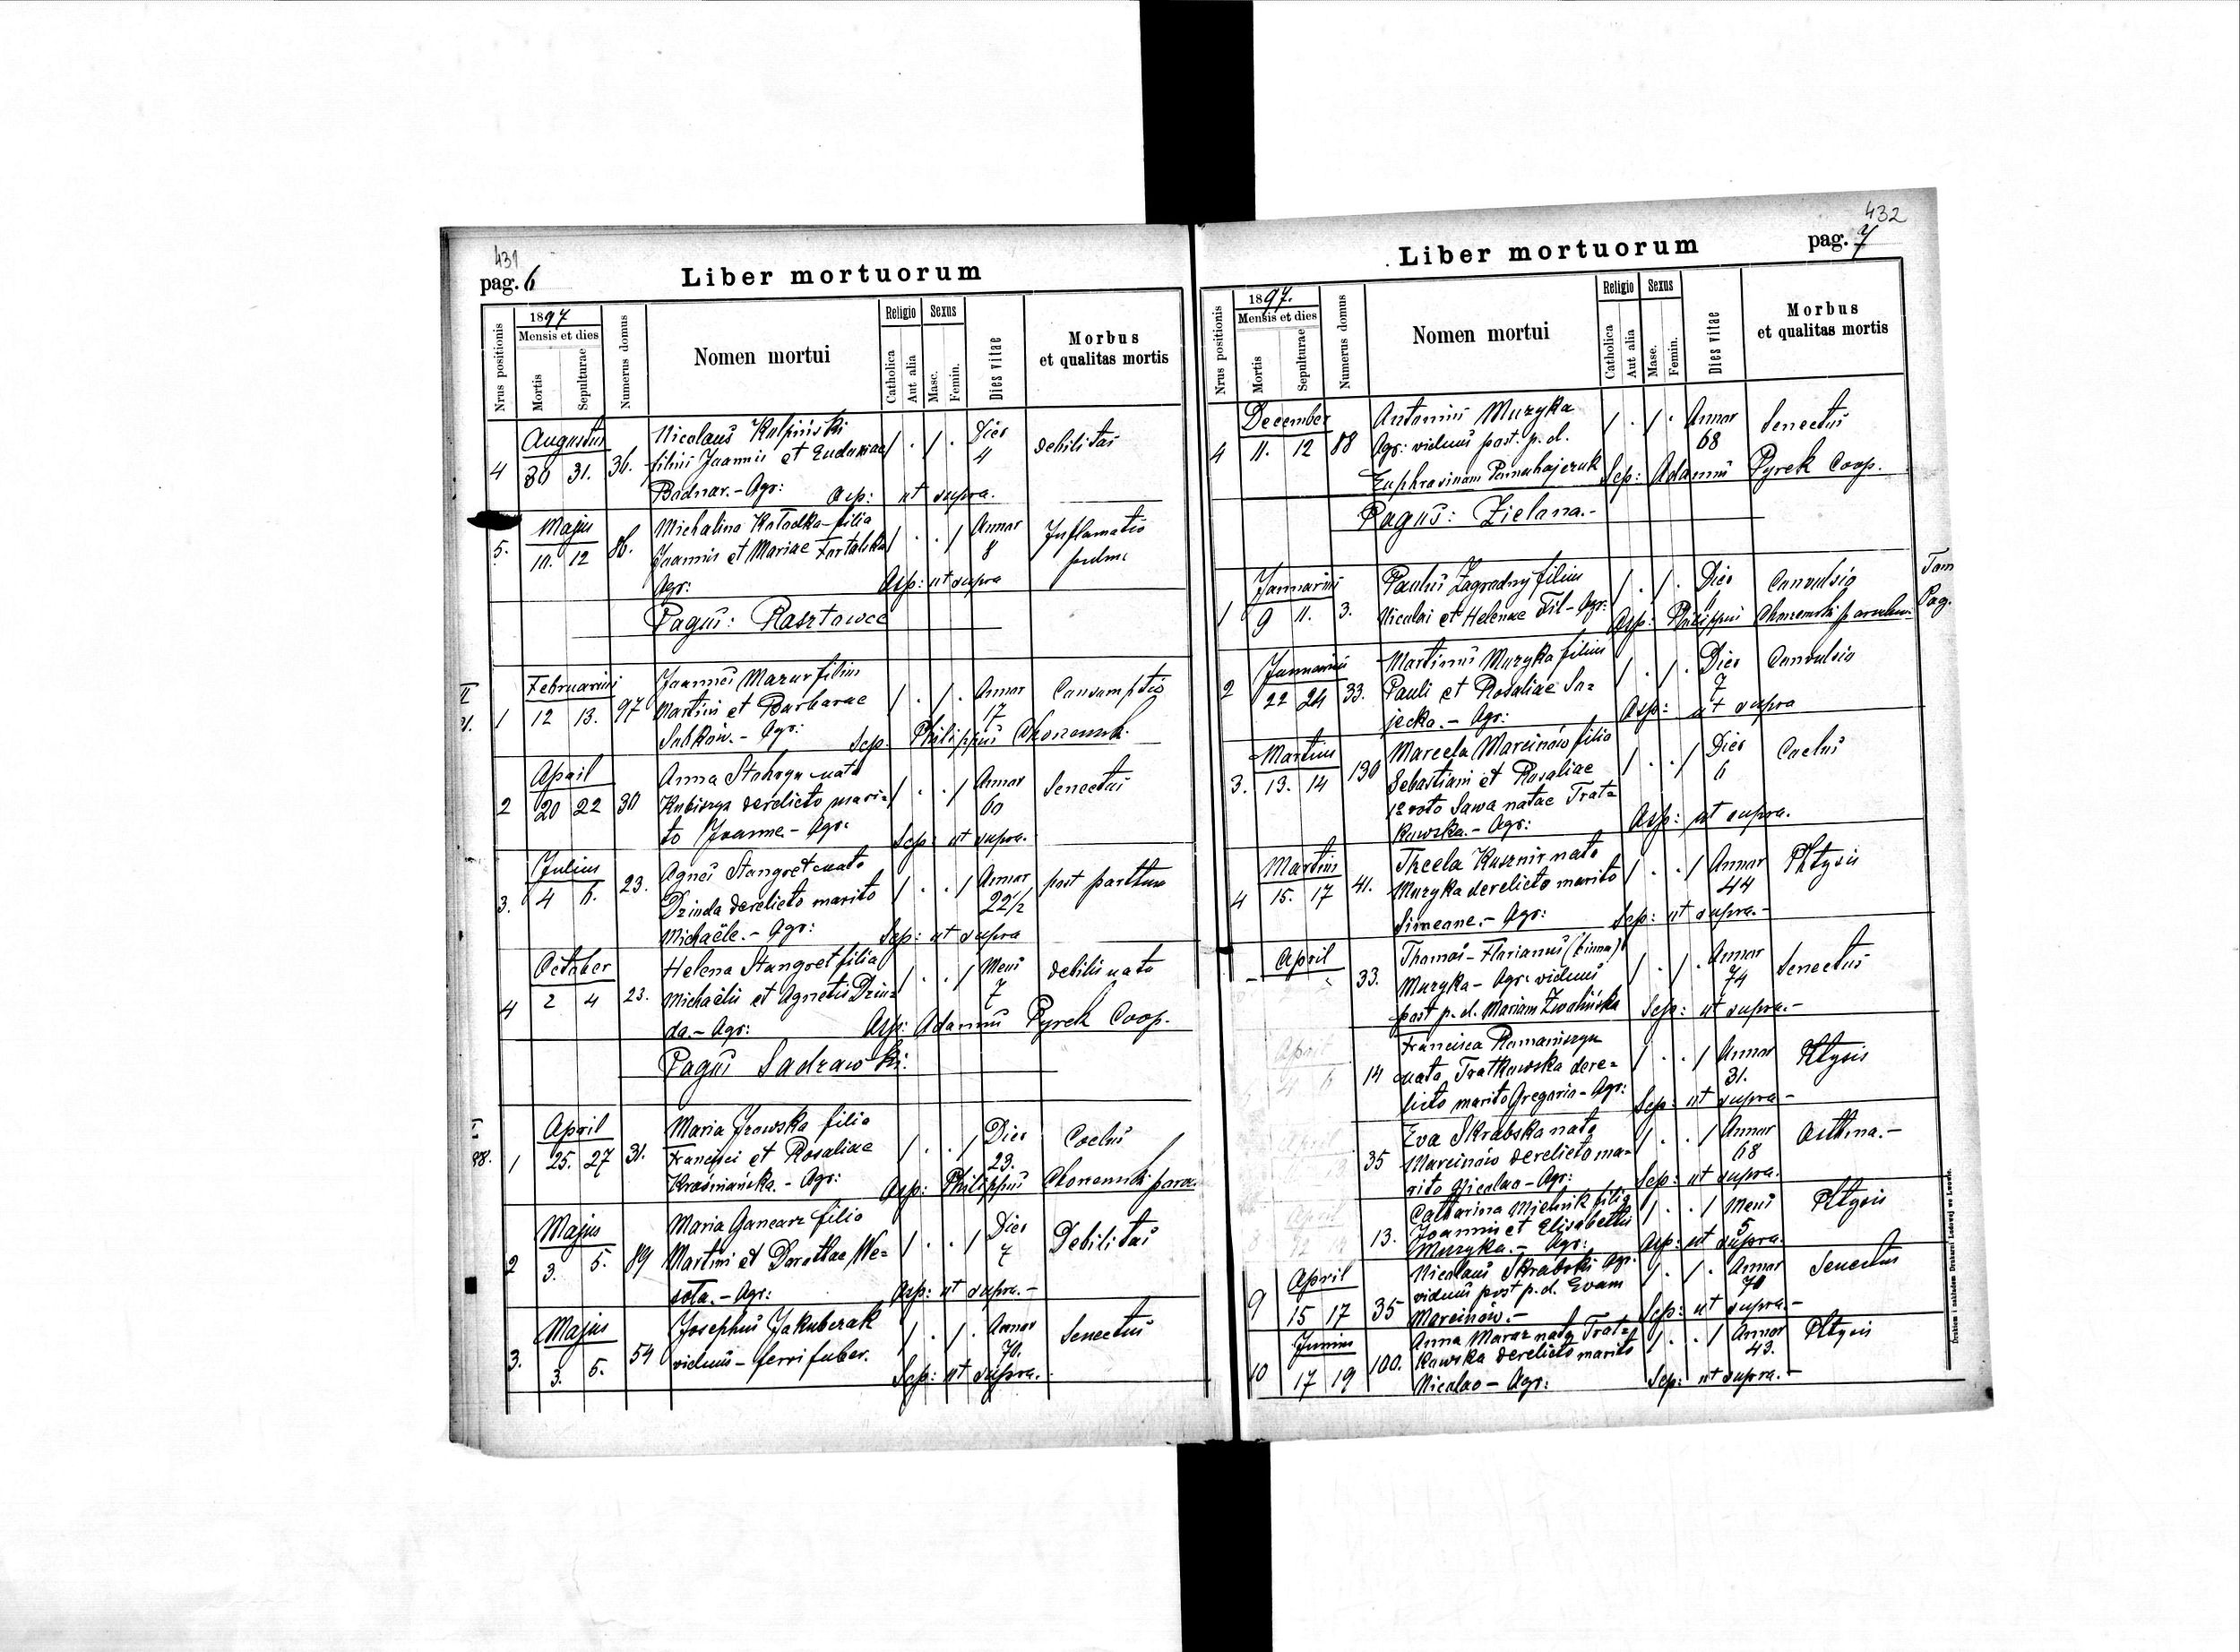 431
pag. 6
Liber mortuorum
Nrus positionis
1897
Mensis et dies
Mortis
Sepulturae
Numerus domus
Nomen mortui
Religio
Catholica
Aut alia
Sexus
Masc.
Femin.
Dies vitae
Morbus
et qualitas mortis
Augustus
4 30 31. 36.
Nicolaus Kulpiński
filius Joannis et Eudoxiae
Bodnar. - Agr:
/ . / . Dies
4
debilitas
Asp: ut supra.
Majus
5. 10. 12 86.
Michalina Kołodka filia
Joannis et Mariae
Agr:
/ . . / Annor
8
Inflamatio
pulm:
Asp: ut supra
Pagus: Rasztowce
Februarius
1 12 13. 97
Joannes Mazur filius
Martini et Barbarae
- Agr:
/ . / . Annor
17
Consumptio
Sep: Philippus
April
2 20 22 30
Anna nata
Kubiszyn derelicto mari=
to Joanne - Agr:
/ . . / Annor
60
Senectus
Sep: ut supra.
Julius
3. 4 6. 23.
Agnes Stangret nata
Dziuda derelicto marito
Michaële. - Agr:
/ . . / Annor
22 1/2
post parttum
Sep: ut supra
October
4 2 4 23.
Helena Stangret filia
Michaëlis et Agnetis Dziu=
da. - Agr:
/ . . / Mens
7
debilis nata
Asp: Adamus Pyrek Coop.
Pagus Sadzawki.
April
1 25. 27 31.
Maria filia
Francisci et Rosaliae
- Agr:
/ . . / Dies
23.
Coelus
Asp: Philippus
Majus
2 3. 5. 89
Maria Gancarz filia
Martini et Dorothae We=
sota. - Agr:
/ . . / Dies
7
Debilitas
Asp: ut supra. -
Majus
3. 3. 5. 54
Josephus Jakubczak
viduus - ferri faber.
/ . / . Annor
70.
Senectus
Sep: ut supra.
432
pag. 7
Liber mortuorum
Nrus positionis
1897.
Mensis et dies
Mortis
Sepulturae
Numerus domus
Nomen mortui
Religio
Catholica
Aut alia
Sexus
Masc.
Femin.
Dies vitae
Morbus
et qualitas mortis
December
4 11. 12 88
Antonius Muzyka
Agr: viduus post. p. d.
Euphrosinam
/ . / . Annor
68
Senectus
Sep: Adamus Pyrek Coop.
Pagus: Zielona. -
Januarius
1 9 11. 3.
Paulus Zagrodny filius
Nicolai et Helenae Fil - Agr:
/ . / . Dies
Convulsio
Asp: Philippus
Tom
Pag.
Januarius
2 22 24 33.
Martinus Muzyka filius
Pauli et Rosaliae Sa=
jecka. - Agr:
/ . / . Dies
7
Convulsio
Asp: ut supra
Martius
3. 13. 14 130
Marcela Marcinów filia
Sebastiani et Rosaliae
1º voto Sawa natae Trat=
kowska. - Agr:
/ . . / Dies
6
Coelus
Asp: ut supra.
Martius
4 15. 17 41.
Thecla Kusznir nata
Muzyka derelicto marito
Simeone. - Agr:
/ . . / Annor
44
Phtysis
Sep: ut supra. -
April
33.
Thomas - Florianus (binom)
Muzyka - Agr: viduus
post p. d. Mariam
/ . / . Annor
74
Senectus
Sep: ut supra. -
April
14
Francisca Romaniszyn
nata Tratkowska dere=
licto marito Gregorio - Agr:
/ . . / Annor
31.
Phtysis
Sep: ut supra -
April
35
Eva Skrabska nata
Marcinów derelicto ma=
rito Nicolao - Agr:
/ . . / Annor
68
Asthma. -
Sep: ut supra.
April
13.
Catharina Mielnik filia
Joannis et Elisabethis
Muzyka. - Agr:
/ . . / Mens
5
Phtysis
Asp: ut supra.
April
9 15 17 35
Nicolaus Skrabski Agr.
viduus post p. d. Evam
Marcinów. -
/ . / . Annor
70
Senectus
Sep: ut supra. -
Junius
10 17 19 100.
Anna Maraz nata Trat=
kowska derelicto marito
Nicolao - Agr:
/ . . / Annor
43.
Phtysis
Sep: ut supra. -
Drukiem i nakładem Drukarni Ludowej we Lwowie.